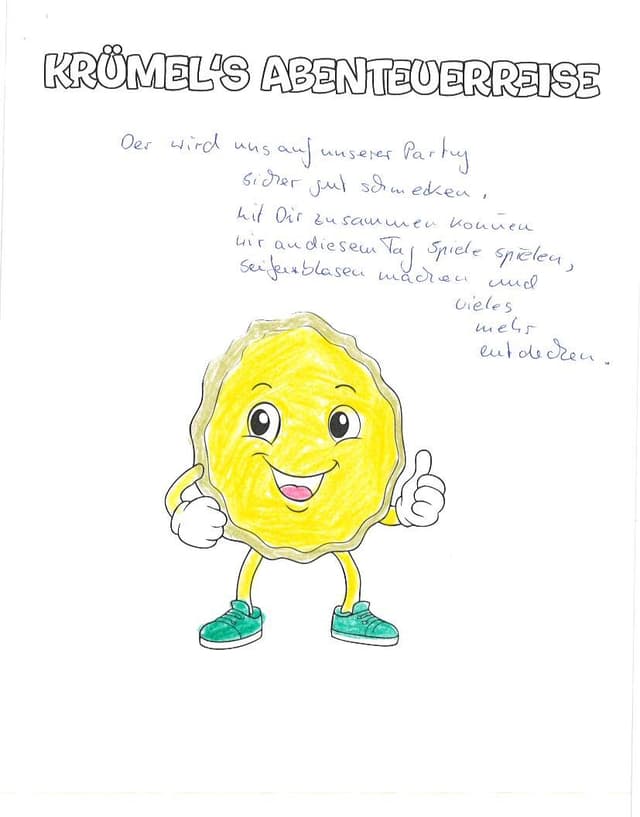 KRÜMEL'S ABENTEUERREISE
Der wird uns auf unserer Party
sicher gut schmecken,
Mit Dir zusammen können
wir an diesem Tag Spiele spielen,
Seifenblasen machen und
vieles
mehr
entdecken.